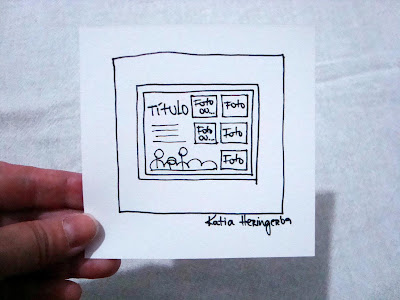 TÍTULO
Foto ou...
Foto
Foto ou...
Foto
Foto
Katia Heringer 09